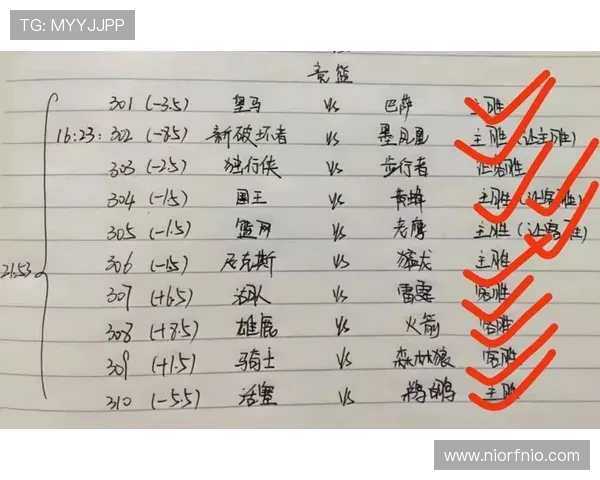 TG: MYYJJPP
竞篮
301 (-3.5) 皇马 VS 巴萨 主胜
16:23: 302 (-8.5) 新破坏者 VS 墨凤凰 主胜 (让主胜)
303 (-2.5) 独行侠 VS 步行者 让客胜
304 (-1.5) 国王 VS 黄蜂 主胜 (让客胜)
305 (-1.5) 篮网 VS 老鹰 主胜 (让客胜)
21:53
306 (-1.5) 尼克斯 VS 猛龙 主胜
307 (+6.5) VS 雷霆 客胜
308 (+8.5) 雄鹿 VS 火箭 客胜
309 (+1.5) 骑士 VS 森林狼 客胜
310 (-5.5) 活塞 VS 鹈鹕 主胜
www.niorfnio.com